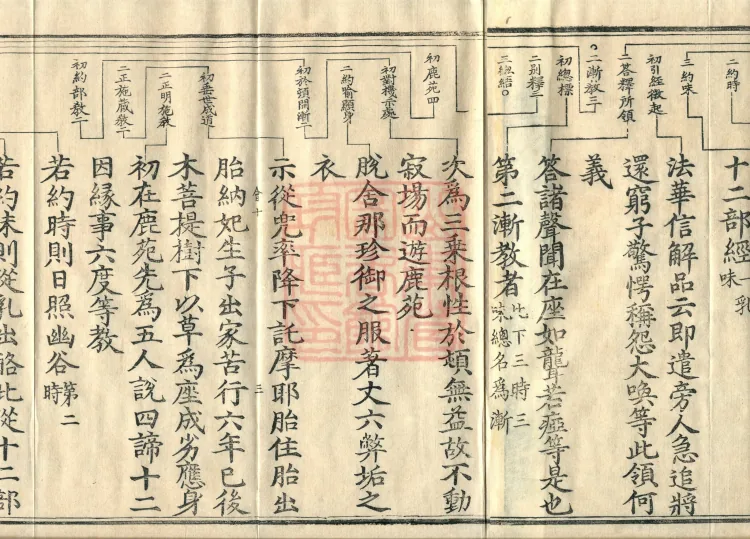 二約時
三約味
初引經徵起
二答釋所領
二漸教三
初總標
二別釋三
三總結
初鹿苑四
初對機示處
二約喻顯身
初於頓開漸二
初垂世成道
二正明施教
二正施藏教二
初約部教二
十二部經一乳味
法華信解品云即遣旁人急追將
還窮子驚愕稱怨大喚等此領何
義
答諸聲聞在座如聾若瘂等是也
第二漸教者此下三時三味總名爲漸
次爲三乘根性於頓無益故不動
寂場而遊鹿苑
脫舍那珍御之服著丈六弊垢之
衣
示從兜率降下託摩耶胎住胎出
三
胎納妃生子出家苦行六年已後
木菩提樹下以草爲座成劣應身
初在鹿苑先爲五人說四諦十二
因緣事六度等教
若約時則日照幽谷第二時
若約味則從乳出酪此從十二部